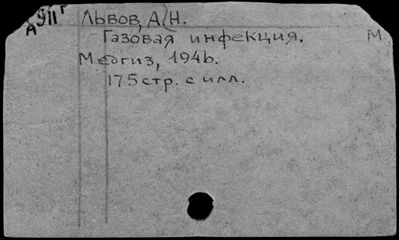 911г Львов, А.Н.
А
Газовая инфекция. М.
Медгиз, 1946.
175 стр. с илл.